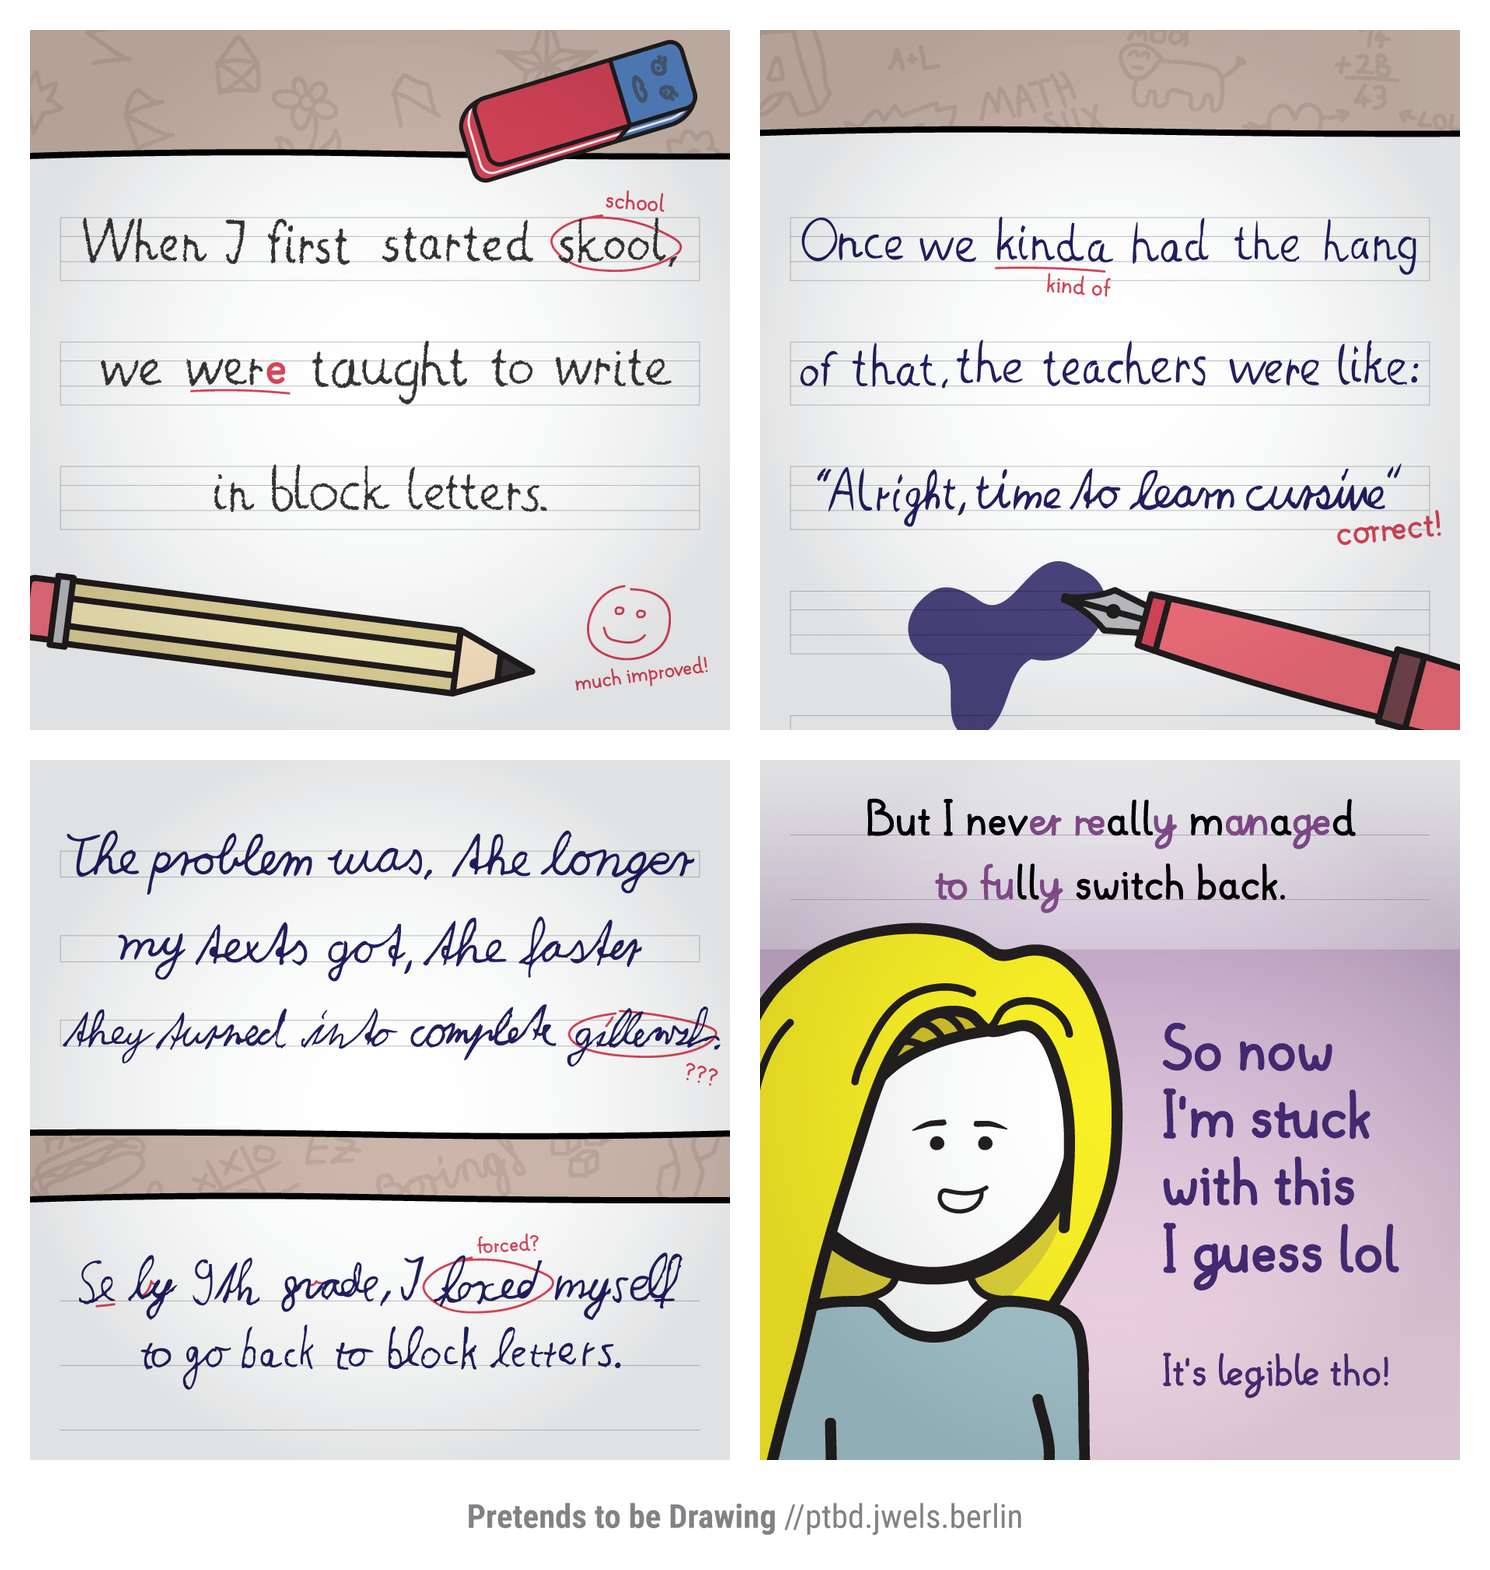 school
When I first started skool,
we were taught to write
in block letters.
much improved!
A+L
MATH
SUX
14
+28
43
LOL
Once we kinda had the hang
kind of
of that, the teachers were like:
"Alright, time to learn cursive"
correct!
The problem was, the longer
my texts got, the faster
they turned into complete
???
EZ
Boring!
forced?
Se by 9th grade, I foxed myself
to go back to block letters.
But I never really managed
to fully switch back.
So now
I'm stuck
with this
I guess lol
It's legible tho!
Pretends to be Drawing //ptbd.jwels.berlin